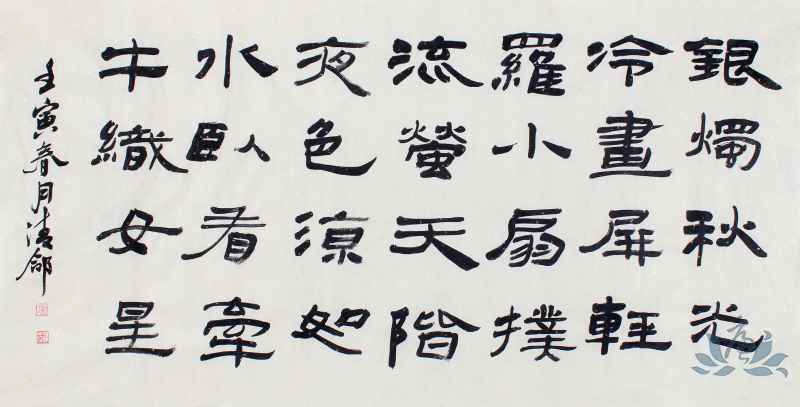 銀燭秋光
冷畫屏輕
羅小扇撲
流螢天階
夜色涼如
水臥看牽
牛織女星
壬寅春月清郃